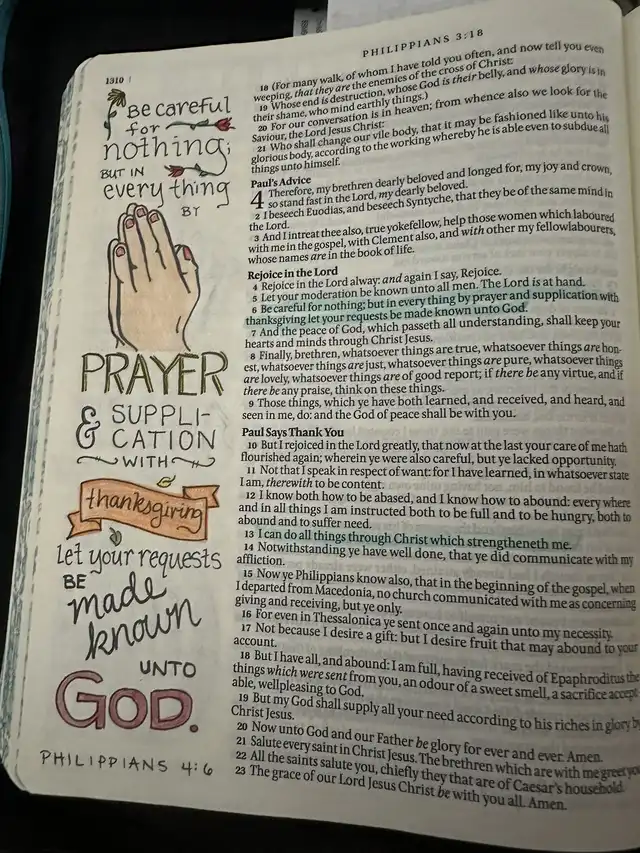 PHILIPPIANS 3:18
1310
Be careful
for
nothing;
BUT IN
every thing
BY
PRAYER
& SUPPLI-
CATION
WITH
thanksgiving
let your requests
BE
made
known
UNTO
GOD.
PHILIPPIANS 4:6
18 (For many walk, of whom I have told you often, and now tell you even
weeping, that they are the enemies of the cross of Christ:
19 Whose end is destruction, whose God is their belly, and whose glory is in
their shame, who mind earthly things.)
20 For our conversation is in heaven; from whence also we look for the
Saviour, the Lord Jesus Christ:
21 Who shall change our vile body, that it may be fashioned like unto his
glorious body, according to the working whereby he is able even to subdue all
things unto himself.
Paul's Advice
4 Therefore, my brethren dearly beloved and longed for, my joy and crown,
so stand fast in the Lord, my dearly beloved.
2 I beseech Euodias, and beseech Syntyche, that they be of the same mind in
the Lord.
3 And I intreat thee also, true yokefellow, help those women which laboured
with me in the gospel, with Clement also, and with other my fellowlabourers,
whose names are in the book of life.
Rejoice in the Lord
4 Rejoice in the Lord alway: and again I say, Rejoice.
5 Let your moderation be known unto all men. The Lord is at hand.
6 Be careful for nothing; but in every thing by prayer and supplication with
thanksgiving let your requests be made known unto God.
7 And the peace of God, which passeth all understanding, shall keep your
hearts and minds through Christ Jesus.
8 Finally, brethren, whatsoever things are true, whatsoever things are hon-
est, whatsoever things are just, whatsoever things are pure, whatsoever things
are lovely, whatsoever things are of good report; if there be any virtue, and if
there be any praise, think on these things.
9 Those things, which ye have both learned, and received, and heard, and
seen in me, do: and the God of peace shall be with you.
Paul Says Thank You
10 But I rejoiced in the Lord greatly, that now at the last your care of me hath
flourished again; wherein ye were also careful, but ye lacked opportunity.
11 Not that I speak in respect of want: for I have learned, in whatsoever state
I am, therewith to be content.
12 I know both how to be abased, and I know how to abound: every where
and in all things I am instructed both to be full and to be hungry, both to
abound and to suffer need.
13 I can do all things through Christ which strengtheneth me.
14 Notwithstanding ye have well done, that ye did communicate with my
affliction.
15 Now ye Philippians know also, that in the beginning of the gospel, when
I departed from Macedonia, no church communicated with me as concerning
giving and receiving, but ye only.
16 For even in Thessalonica ye sent once and again unto my necessity.
17 Not because I desire a gift: but I desire fruit that may abound to your
account.
18 But I have all, and abound: I am full, having received of Epaphroditus the
things which were sent from you, an odour of a sweet smell, a sacrifice accept-
able, wellpleasing to God.
19 But my God shall supply all your need according to his riches in glory by
Christ Jesus.
20 Now unto God and our Father be glory for ever and ever. Amen.
21 Salute every saint in Christ Jesus. The brethren which are with me greet you
22 All the saints salute you, chiefly they that are of Caesar's household.
23 The grace of our Lord Jesus Christ be with you all. Amen.